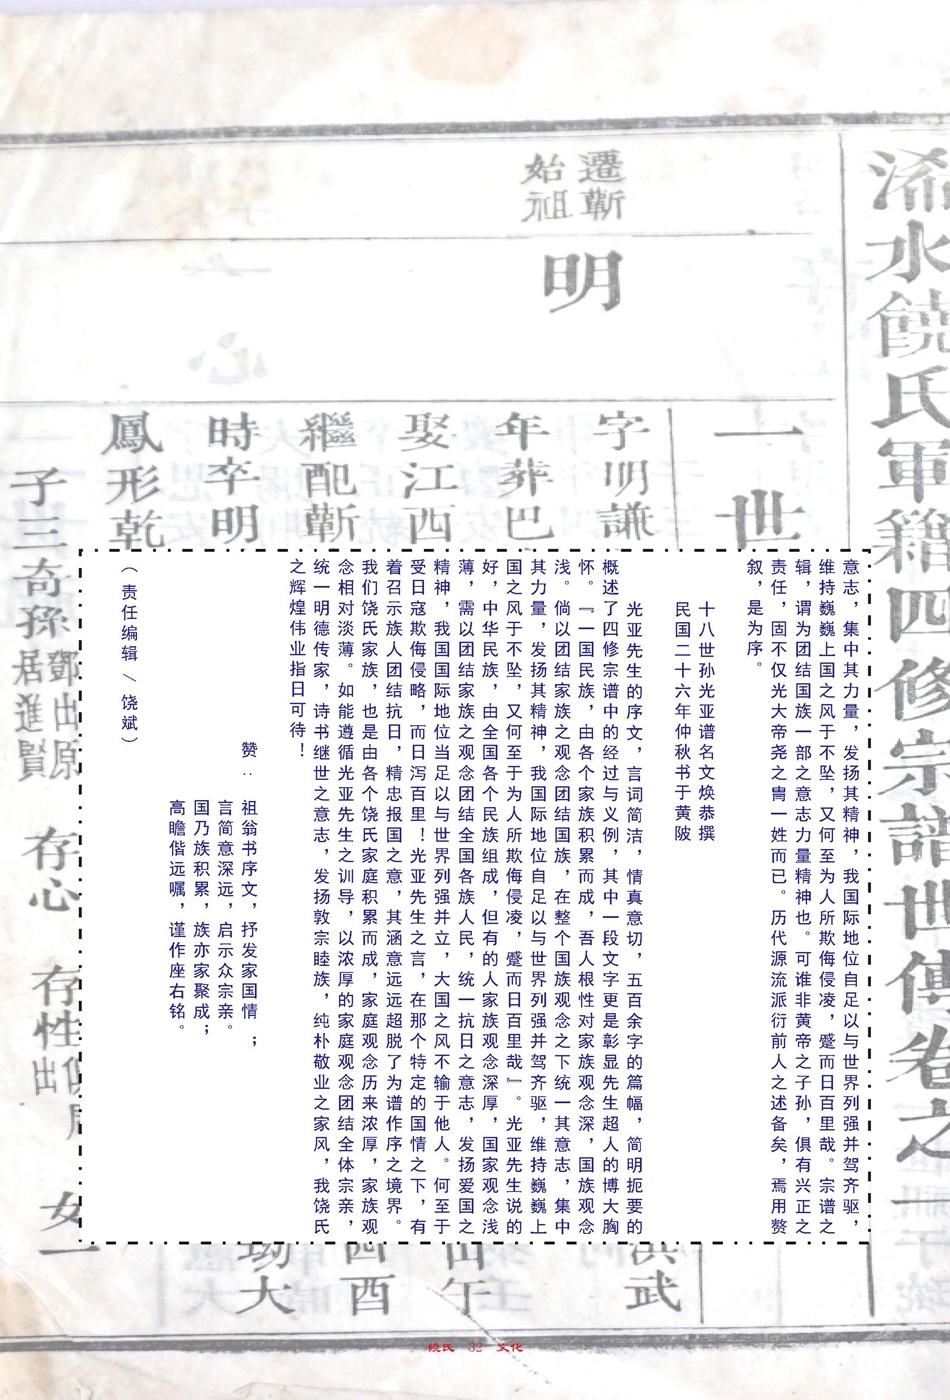 浠水饒氏軍籍四修宗譜世傳卷之一
一世
遷蘄
始祖
明
字明謙
洪武
年葬巴
娶江西
山午
繼配蘄
四酉
時卒明
坳大
鳳形乾
子三奇孫
鄧出原
居進賢
存心
存性
女一
意志，集中其力量，发扬其精神，我国际地位自足以与世界列强并驾齐驱，
维持巍巍上国之风于不坠，又何至为人所欺侮侵凌，蹙而日百里哉。宗谱之
辑，谓为团结国族一部之意志力量精神也。可谁非黄帝之子孙，俱有兴正之
责任，固不仅光大帝尧之胄一姓而已。历代源流派衍前人之述备矣，焉用赘
叙，是为序。
十八世孙光亚谱名文焕恭撰
民国二十六年仲秋书于黄陂
光亚先生的序文，言词简洁，情真意切，五百余字的篇幅，简明扼要的
概述了四修宗谱中的经过与义例，其中一段文字更是彰显先生超人的博大胸
怀。『一国民族，由各个家族积累而成，吾人根性对家族观念深，国族观念
浅。倘以团结家族之观念团结国族，在整个国族观念之下统一其意志，集中
其力量，发扬其精神，我国际地位自足以与世界列强并驾齐驱，维持巍巍上
国之风于不坠，又何至于为人所欺侮侵凌，蹙而日百里哉』。光亚先生说的
好，中华民族，由全国各个民族组成，但有的人家族观念深厚，国家观念浅
薄，需以团结家族之观念团结全国各族人民，统一抗日之意志，发扬爱国之
精神，我国国际地位当足以与世界列强并立，大国之风不输于他人。何至于
受日寇欺侮侵略，而日泻百里！光亚先生之言，在那个特定的国情之下，有
着召示族人团结抗日，精忠报国之意，其涵意远远超脱了为谱作序之境界。
我们饶氏家族，也是由各个饶氏家庭积累而成，家庭观念历来浓厚，家族观
念相对淡薄。如能遵循光亚先生之训导，以浓厚的家庭观念团结全体宗亲，
统一明德传家，诗书继世之意志，发扬敦宗睦族，纯朴敬业之家风，我饶氏
之辉煌伟业指日可待！
赞：
祖翁书序文，抒发家国情；
言简意深远，启示众宗亲。
国乃族积累，族亦家聚成；
高瞻偕远嘱，谨作座右铭。
（责任编辑/饶斌）
饶氏 32 文化